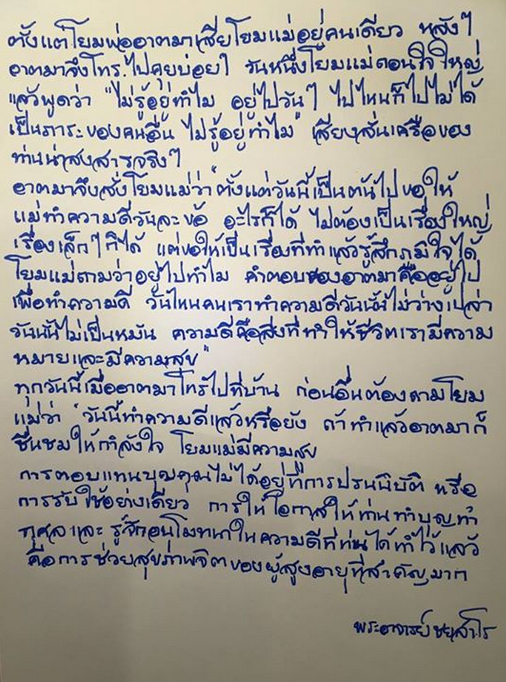 ตั้งแต่โยมพ่ออาตมาเสียโยมแม่อยู่คนเดียว หลังๆ
อาตมาจึงโทร.ไปคุยบ่อยๆ วันหนึ่งโยมแม่ถอนใจใหญ่
แล้วพูดว่า "ไม่รู้อยู่ทำไม อยู่ไปวันๆ ไปไหนก็ไปไม่ได้
เป็นภาระของคนอื่น ไม่รู้อยู่ทำไม" เสียงสั่นเครือของ
ท่านน่าสงสารจริงๆ
อาตมาจึงสั่งโยมแม่ว่า "ตั้งแต่วันนี้เป็นต้นไป ขอให้
แม่ทำความดีวันละข้อ อะไรก็ได้ ไม่ต้องเป็นเรื่องใหญ่
เรื่องเล็กๆ ก็ได้ แต่ขอให้เป็นเรื่องที่ทำแล้วรู้สึกภูมิใจได้
โยมแม่ถามว่าอยู่ไปทำไม คำตอบของอาตมาคืออยู่ไป
เพื่อทำความดี วันไหนคนเราทำความดีวันนั้นไม่ว่างเปล่า
วันนั้นไม่เป็นหมัน ความดีคือสิ่งที่ทำให้ชีวิตเรามีความ
หมายและมีความสุข"
ทุกวันนี้เมื่ออาตมาโทรไปที่บ้าน ก่อนอื่นต้องถามโยม
แม่ว่า "วันนี้ทำความดีแล้วหรือยัง ถ้าทำแล้วอาตมาก็
ชื่นชมให้กำลังใจ โยมแม่มีความสุข
การตอบแทนบุญคุณไม่ได้อยู่ที่การปรนนิบัติ หรือ
การรับใช้อย่างเดียว การให้โอกาสให้ท่านทำบุญทำ
กุศล และ รู้จักอนุโมทนาในความดีที่ท่านได้ทำไว้แล้ว
คือการช่วยสุขภาพจิตของผู้สูงอายุที่สำคัญมาก
พระอาจารย์ชยสาโร